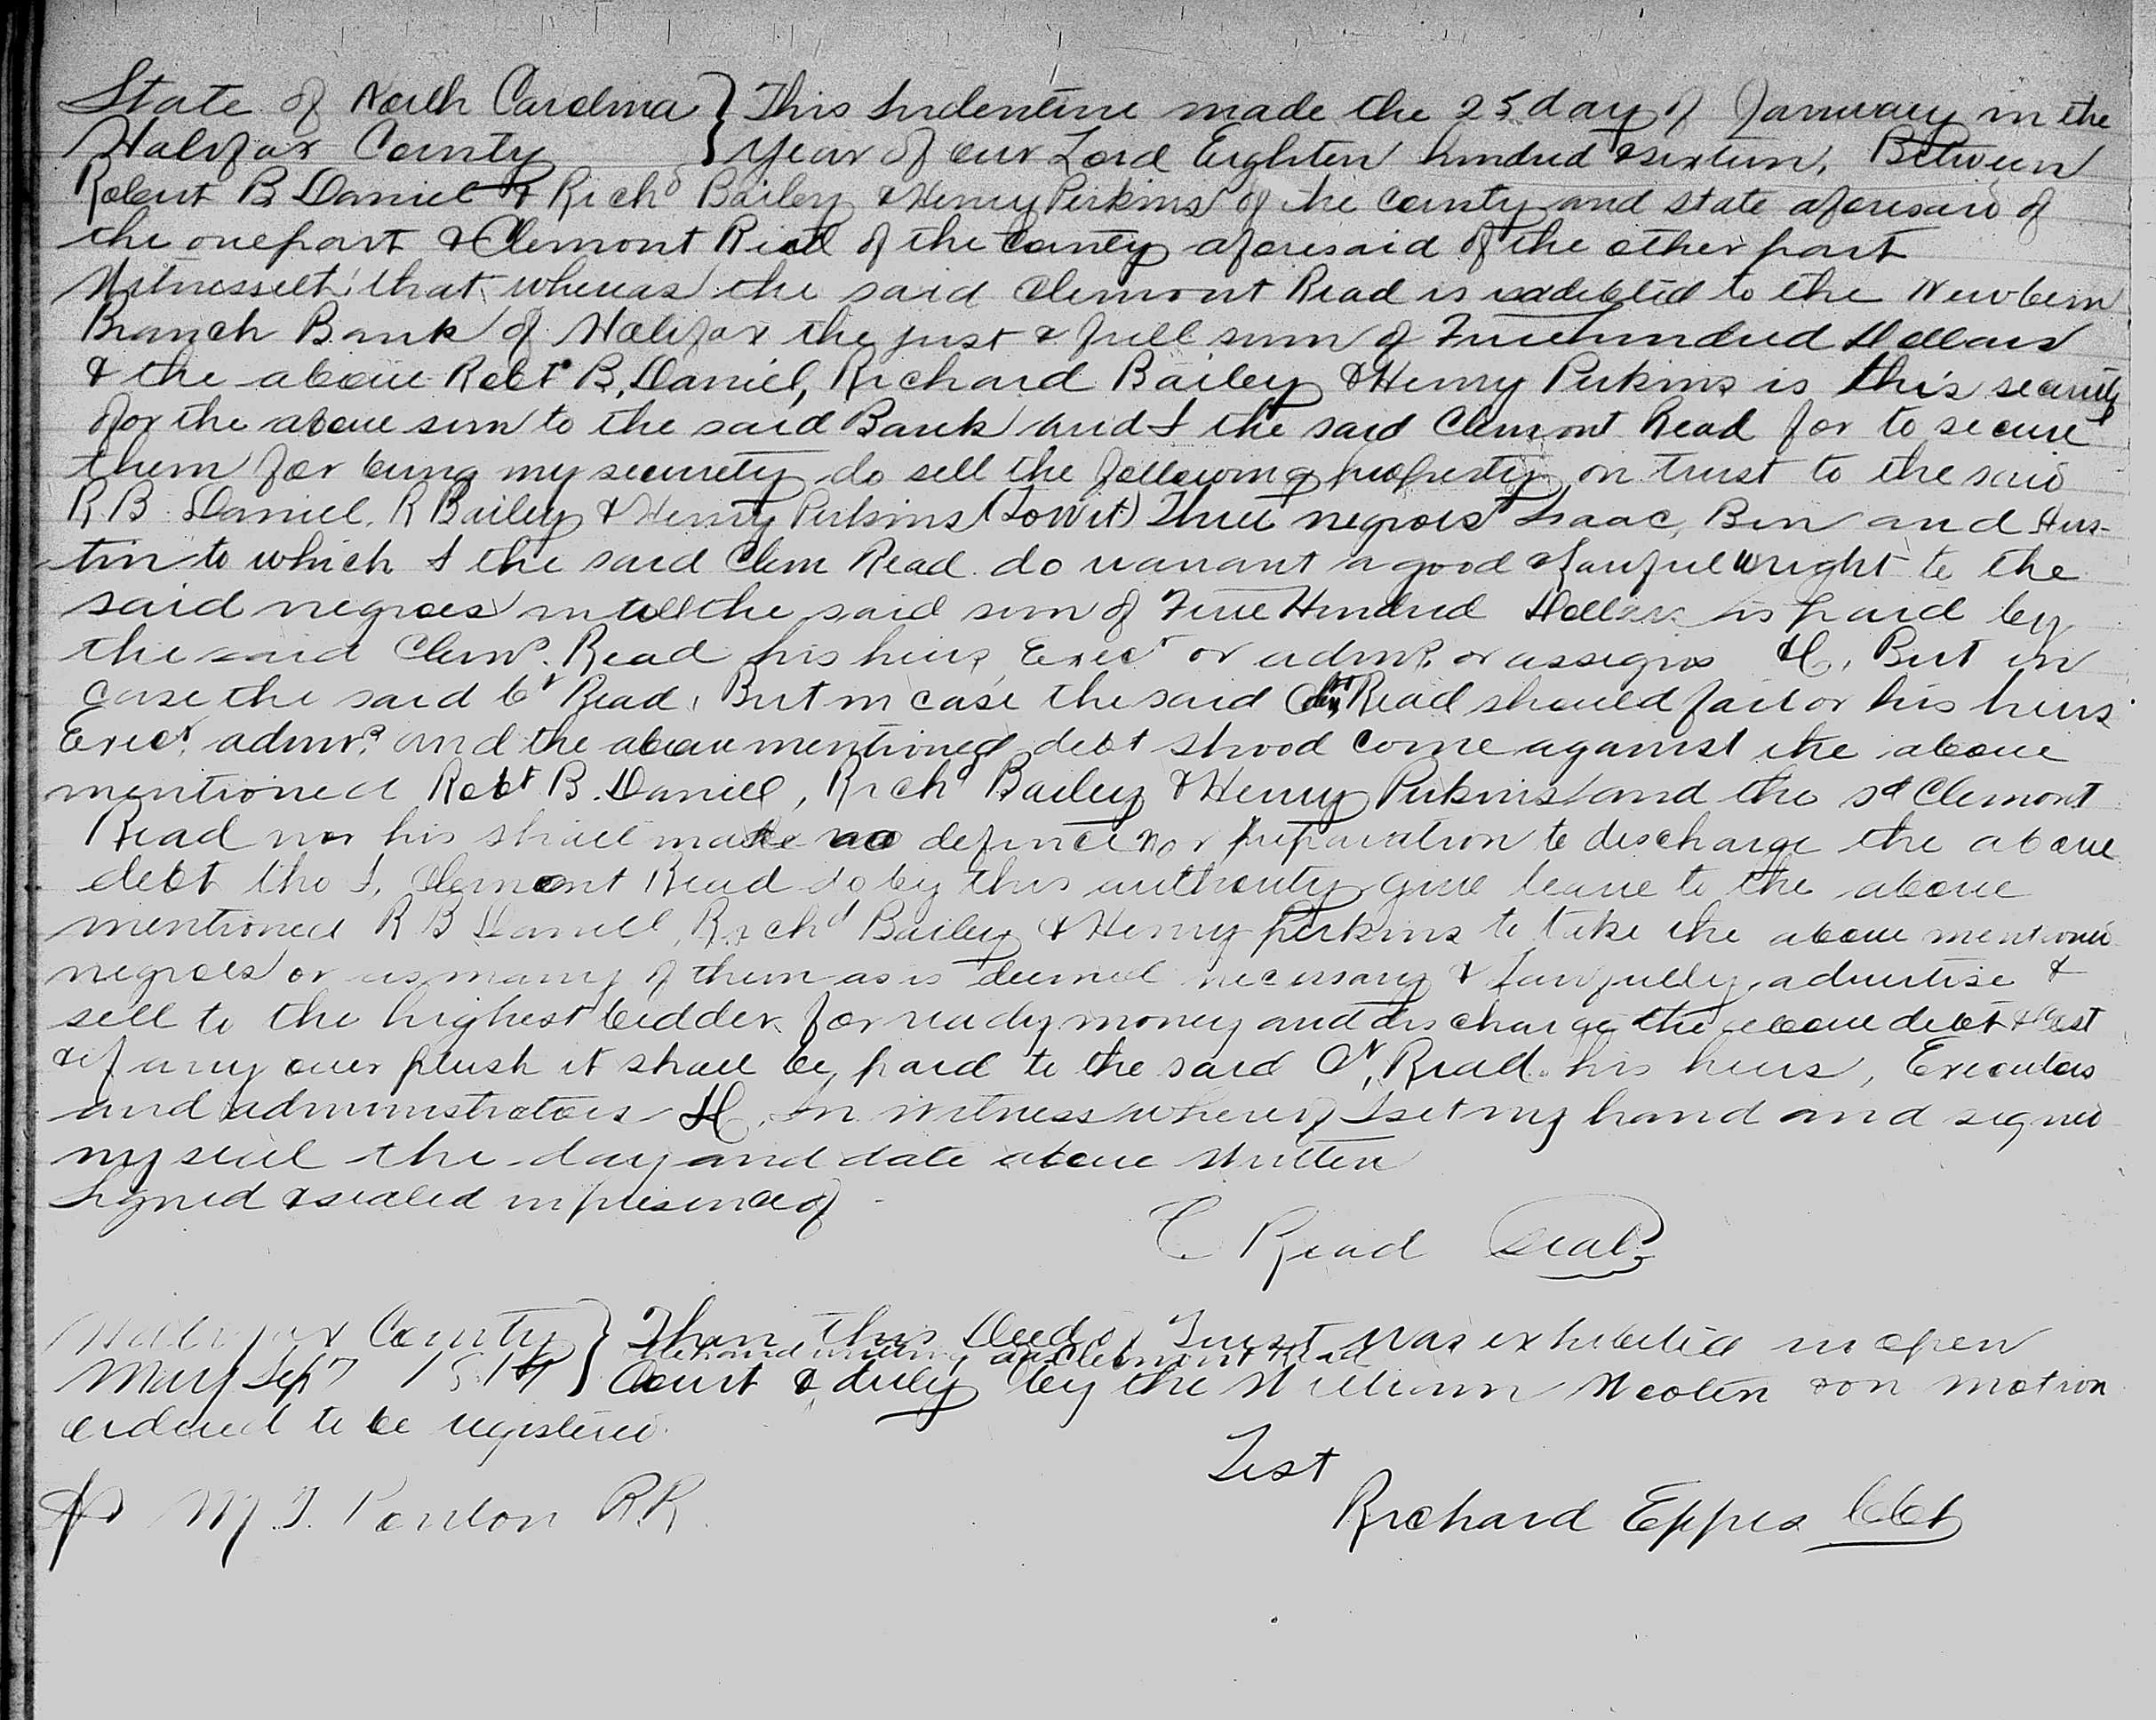 State of North Carolina } This Indenture made the 25 day of January in the
Halifax County } Year of our Lord Eighteen hundred & sixteen, Between
Robert B. Daniel & Richd Bailey & Henry Perkins of the County and state aforesaid of
the one part & Clemont Read of the County aforesaid of the other part
Witnesseth that whereas the said Clemont Read is indebted to the Newbern
Branch Bank of Halifax the just & full sum of Five hundred Dollars
& the above Robt B. Daniel, Richard Bailey & Henry Perkins is this security
for the above sum to the said Bank and I the said Clemont Read for to secure
them for being my security do sell the following property on trust to the said
R B Daniel, R Bailey & Henry Perkins (Towit) Three negroes Isaac, Ben and
tin to which I the said Clem Read do warrant a good & lawful wright to the
said negroes untill the said sum of Five Hundred Dollars is paid by
the said Clemt. Read his heirs Execr or admrs. or assigns &C, But in
case the said Ct Read, But in case the said Clmt Read should fail or his heirs
Execr. admrs. and the above mentioned debt shood come against the above
mentioned Robt B. Daniel, Richd Bailey & Henry Perkins and the sd Clemont
Read nor his shall make no defence nor preparation to discharge the above
debt tho I, Clemont Read do by this authority give leave to the above
mentioned R B Daniel, Richd Bailey & Henry perkins to take the above mentioned
negroes or as many of them as is deemed necessary & lawfully advertise &
sell to the highest bidder for ready money and discharge the above debt & Cost
& if any over plush it shall be paid to the said Ct, Read his heirs, Executors
and administrators &C, In witness whereof I set my hand and signed
my seal the day and date above written
Signed & sealed in presence of
C Read Seal
Halifax County } Then this Deed of Trust was exhibited in open
of Clemont Read
May Sept 181 } Court & duly by the William Wooten & on motion
ordered to be registered.
Test
M. J. R.R.
Richard Eppes CCCt